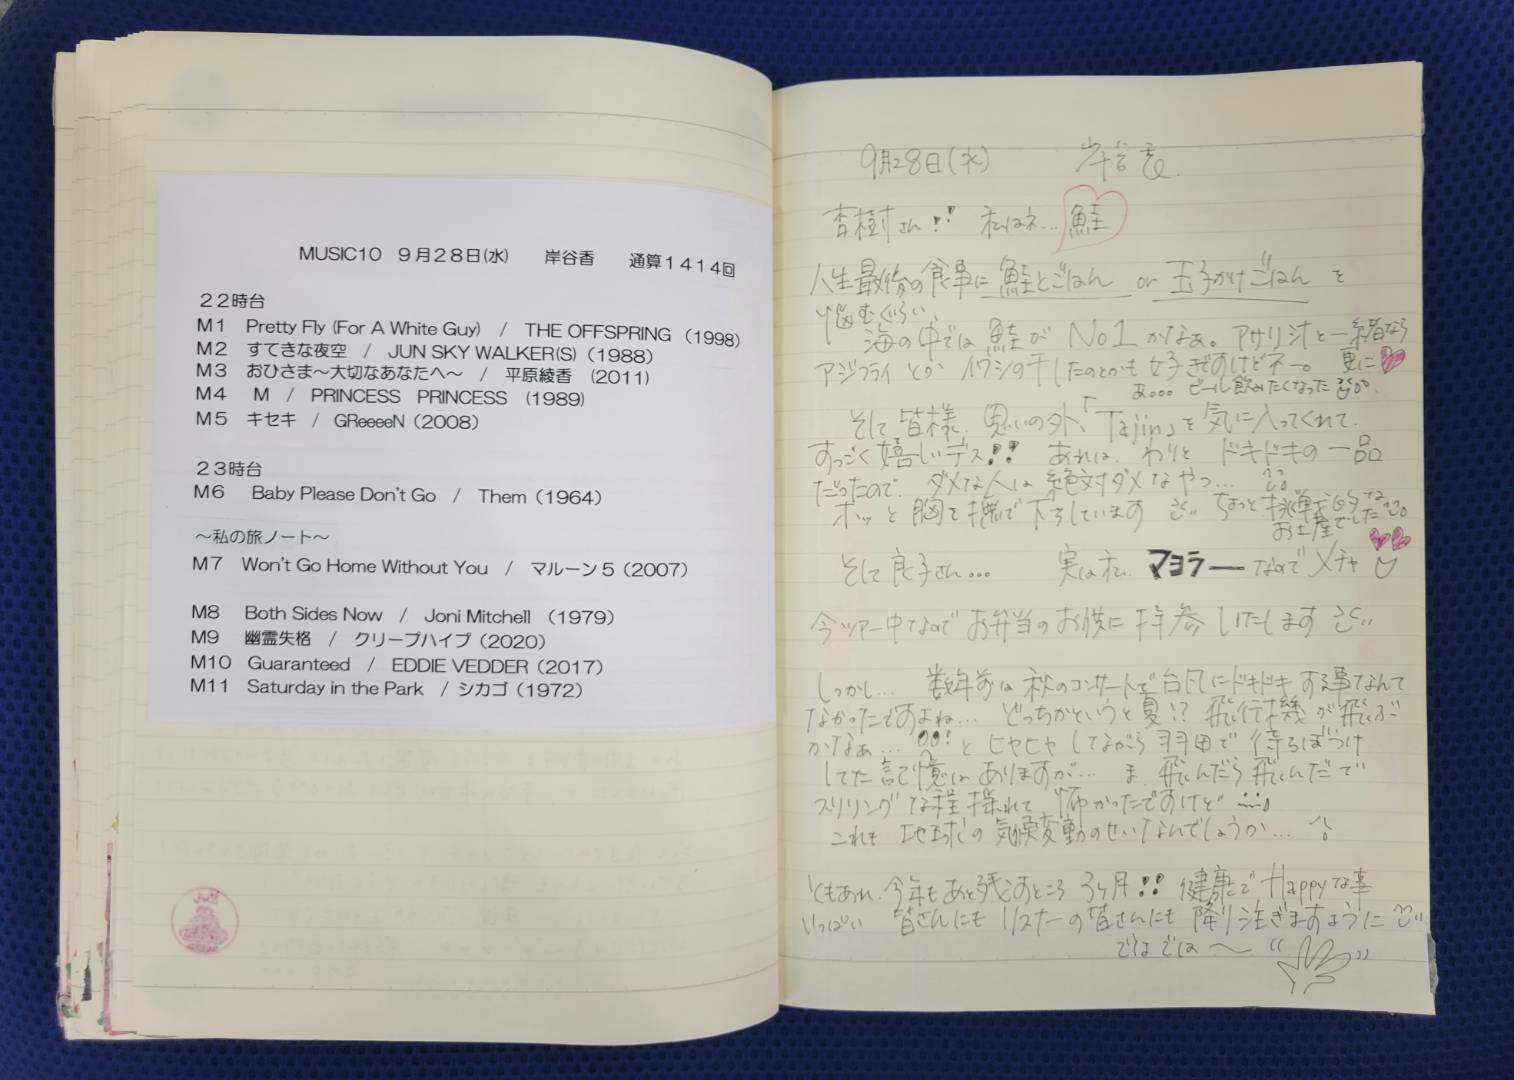 MUSIC10 9月28日(水) 岸谷香 通算1414回
22時台
M1 Pretty Fly (For A White Guy) / THE OFFSPRING (1998)
M2 すてきな夜空 / JUN SKY WALKER(S) (1988)
M3 おひさま〜大切なあなたへ〜 / 平原綾香 (2011)
M4 M / PRINCESS PRINCESS (1989)
M5 キセキ / GReeeeN (2008)
23時台
M6 Baby Please Don't Go / Them (1964)
〜私の旅ノート〜
M7 Won't Go Home Without You / マルーン5 (2007)
M8 Both Sides Now / Joni Mitchell (1979)
M9 幽霊失格 / クリープハイプ (2020)
M10 Guaranteed / EDDIE VEDDER (2017)
M11 Saturday in the Park / シカゴ (1972)
9月28日(水) 岸谷香.
杏樹さん!! 私はネ... 鮭
人生最後の食事に 鮭とごはん or 玉子かけごはん を
悩むぐらい、
海の中では 鮭が No1 かなぁ。アサリ汁と一緒なら
アジフライ とか イワシの干したのとかも 好きですけどネー。 更に
あ... ビール飲みたくなった
そして皆様、思いの外、「Tajin」を気に入ってくれて、
すっごく嬉しいデス!! あれは、わりと ドキドキの一品
だったので、ダメな人は 絶対ダメなやつ...
ホッと胸を撫で下ろしています ちょっと挑戦的な
お土産でした
そして良子さん... 実は私 マヨラー なので メチャ
今ツアー中なので お弁当のお供に 持参 いたします
しっかし... 数年前は 秋のコンサートで台風にドキドキする事なんて
なかったですよね... どっちかというと夏!? 飛行機が飛ぶ
かなぁ...!と ヒヤヒヤしながら 羽田で 待ちぼうけ
してた記憶はありますが... ま、飛んだら飛んだで
スリリングな程揺れて 怖かったですけど
これも 地球の気候変動のせいなんでしょうか...
ともあれ、今年もあと残すところ 3ヶ月!! 健康で Happyな事
いっぱい 皆さんにも リスナーの皆さんにも 降り注ぎますように
ではでは〜